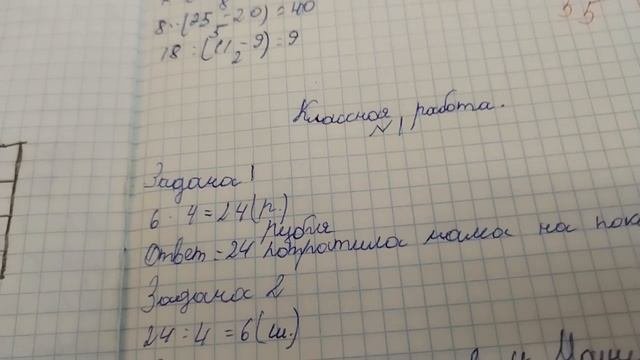 8 · (25 - 20) = 40
5
18 : (11 - 9) = 9
2
55
Классная работа.
№1
Задача 1
6 · 4 = 24 (р.)
рубля
Ответ = 24 потратила мама на пок
Задача 2
24 : 4 = 6 (ш.)